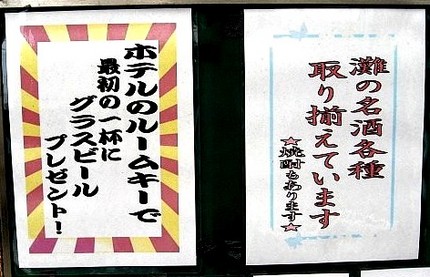 ホテルのルームキーで
最初の一杯に
グラスビール
プレゼント!
灘の名酒各種
取り揃えています
★焼酎もあります★